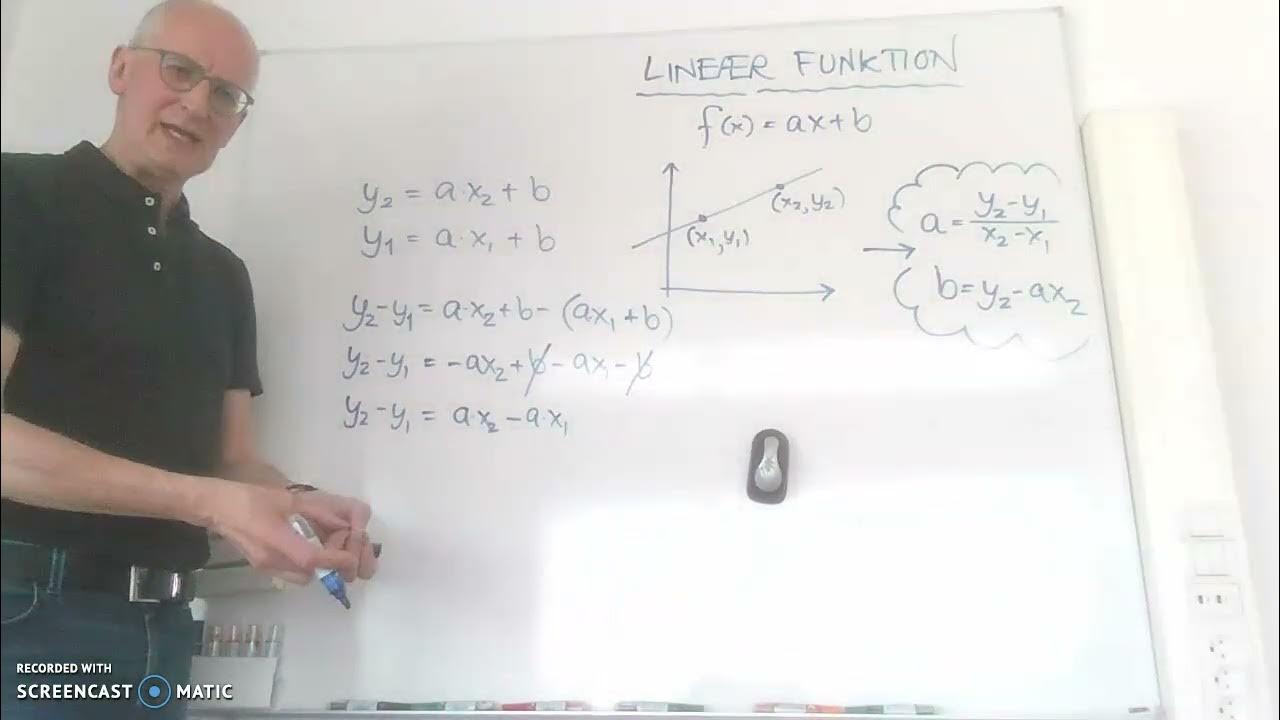 LINEÆR FUNKTION
f(x) = ax+b
y₂ = a·x₂ + b
y₁ = a·x₁ + b
(x₁,y₁)
(x₂,y₂)
a = (y₂-y₁)/(x₂-x₁)
b = y₂-ax₂
y₂-y₁ = a·x₂+b-(ax₁+b)
y₂-y₁ = -ax₂+b-ax₁-b
y₂-y₁ = a·x₂-a·x₁
RECORDED WITH
SCREENCAST MATIC